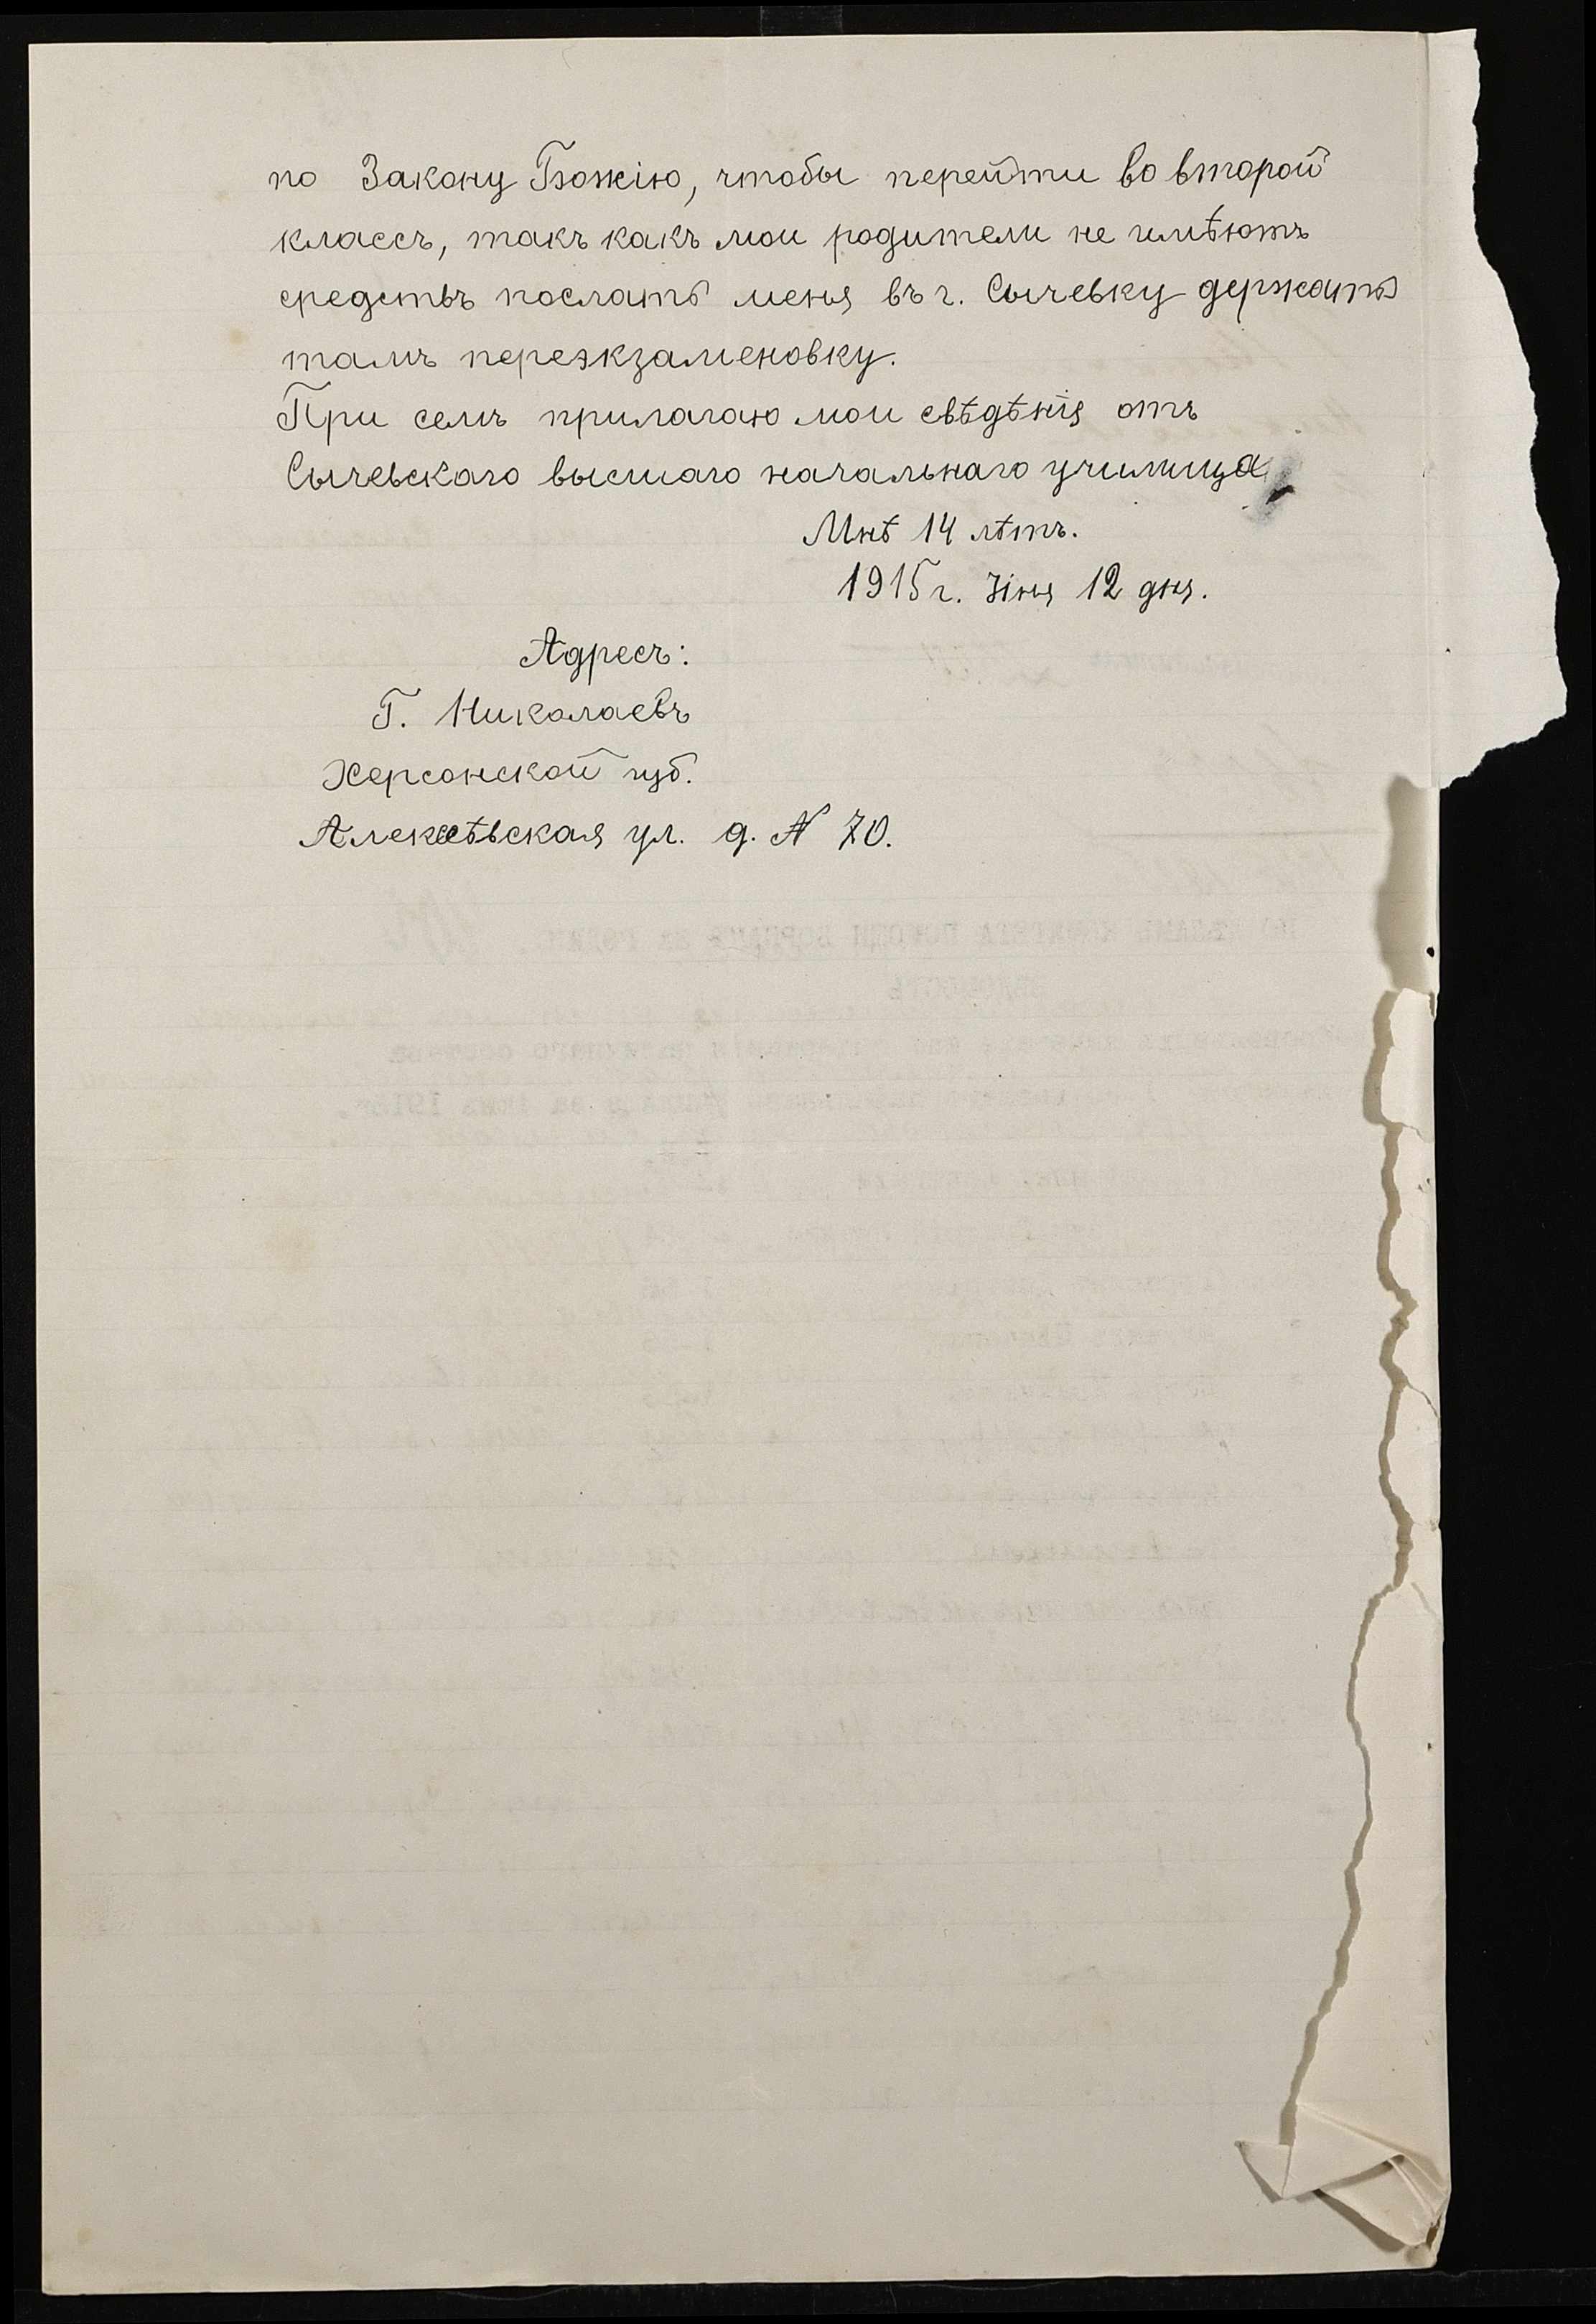 по Закону Божію, чтобы перейти во второй
классъ, такъ какъ мои родители не имѣютъ
средствъ послать меня въ г. Сычевку держать
тамъ переэкзаменовку.
При семъ прилагаю мои свѣдѣнія отъ
Сычевскаго высшаго начальнаго училища
Мнѣ 14 лѣтъ.
1915 г. Іюня 12 дня.
Адресъ:
Г. Николаевъ
Херсонской губ.
Алексѣевская ул. д. № 70.